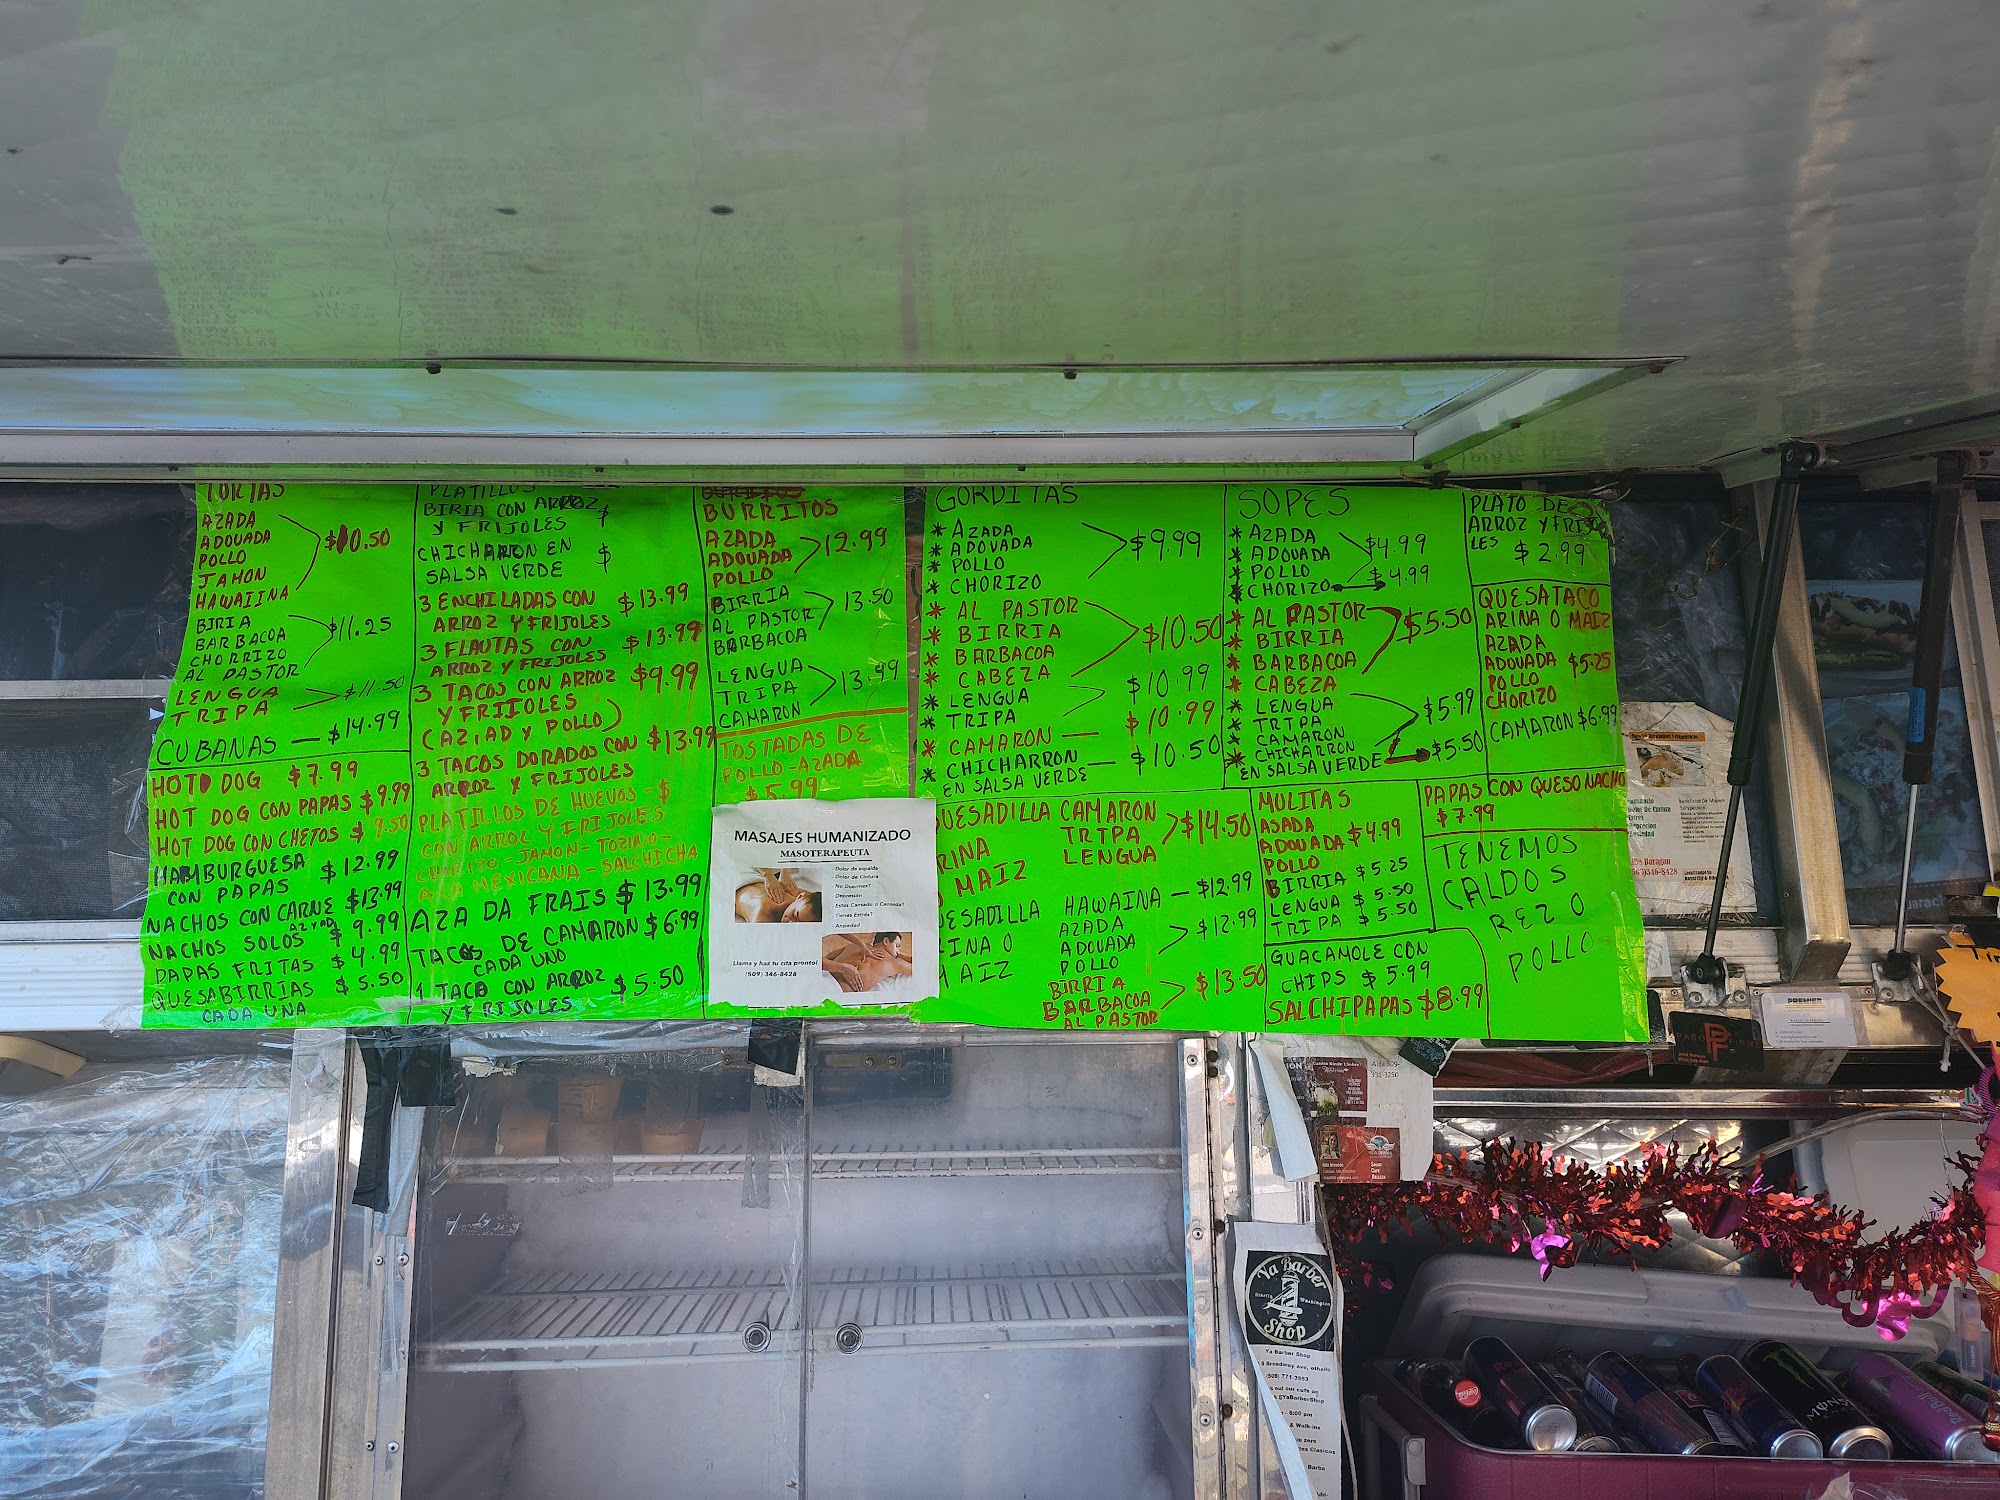 TORTAS
AZADA
ADOUADA
POLLO
JAMON
HAWAIINA
$10.50
BIRIA
BARBACOA
CHORRIZO
AL PASTOR
$11.25
LENGUA
TRIPA
$11.50
CUBANAS — $14.99
HOT DOG $7.99
HOT DOG CON PAPAS $9.99
HOT DOG CON CHETOS $9.50
HAMBURGUESA
CON PAPAS $12.99
NACHOS CON CARNE $13.99
AZADA
NACHOS SOLOS $9.99
PAPAS FRITAS $4.99
QUESABIRRIAS $5.50
CADA UNA
PLATILLOS
BIRIA CON ARROZ
Y FRIJOLES $
CHICHARRON EN
SALSA VERDE $
3 ENCHILADAS CON
ARROZ Y FRIJOLES $13.99
3 FLAUTAS CON
ARROZ Y FRIJOLES $13.99
3 TACOS CON ARROZ
Y FRIJOLES $9.99
(AZIAD Y POLLO)
3 TACOS DORADOS CON
ARROZ Y FRIJOLES $13.99
PLATILLOS DE HUEVOS - $
CON ARROZ Y FRIJOLES
CHORIZO - JAMON - TOZINO -
A LA MEXICANA - SALCHICHA
AZADA FRAIS $13.99
TACOS DE CAMARON $6.99
CADA UNO
1 TACO CON ARROZ
Y FRIJOLES $5.50
BURRITOS
AZADA
ADOUADA
POLLO
12.99
BIRRIA
AL PASTOR
BARBACOA
13.50
LENGUA
TRIPA
CAMARON
13.99
TOSTADAS DE
POLLO - AZADA
$5.99
MASAJES HUMANIZADO
MASOTERAPEUTA
Dolor de espalda
Dolor de Cintura
No Duermes?
Depresión
Estas Cansado o Cansada?
Tienes Estrés?
Ansiedad
Llama y haz tu cita pronto!
(509) 346-8428
GORDITAS
* AZADA
* ADOVADA
* POLLO
* CHORIZO
$9.99
* AL PASTOR
* BIRRIA
* BARBACOA
* CABEZA
$10.50
* LENGUA
* TRIPA
$10.99
* CAMARON — $10.99
* CHICHARRON
EN SALSA VERDE — $10.50
UESADILLA CAMARON
TRIPA
LENGUA
$14.50
RINA
MAIZ
ESADILLA
INA O
AIZ
HAWAINA — $12.99
AZADA
ADOUADA
POLLO
$12.99
BIRRIA
BARBACOA
AL PASTOR
$13.50
SOPES
* AZADA
* ADOUADA
* POLLO
$4.99
* CHORIZO $4.99
* AL PASTOR
* BIRRIA
* BARBACOA
* CABEZA
$5.50
* LENGUA
* TRIPA
* CAMARON
$5.99
* CHICHARRON
EN SALSA VERDE $5.50
MULITAS
ASADA
ADOUADA
POLLO
$4.99
BIRRIA $5.25
LENGUA $5.50
TRIPA $5.50
GUACAMOLE CON
CHIPS $5.99
SALCHIPAPAS $8.99
PLATO DE
ARROZ Y FRIJO
LES $2.99
QUESATACO
ARINA O MAIZ
AZADA
ADOUADA
POLLO
CHORIZO
$5.25
CAMARON $6.99
PAPAS CON QUESO NACHO
$7.99
TENEMOS
CALDOS
REZ O
POLLO
PREMIER
Aida 509-
331-3250
Ya Barber
Shop
Ya Barber Shop
S Broadway ave, othello
(509) 771-3553
k out our cuts on
@YaBarberShop
- 8:00 pm
& Walk-ins
Barba
MONSTER
Red Bull